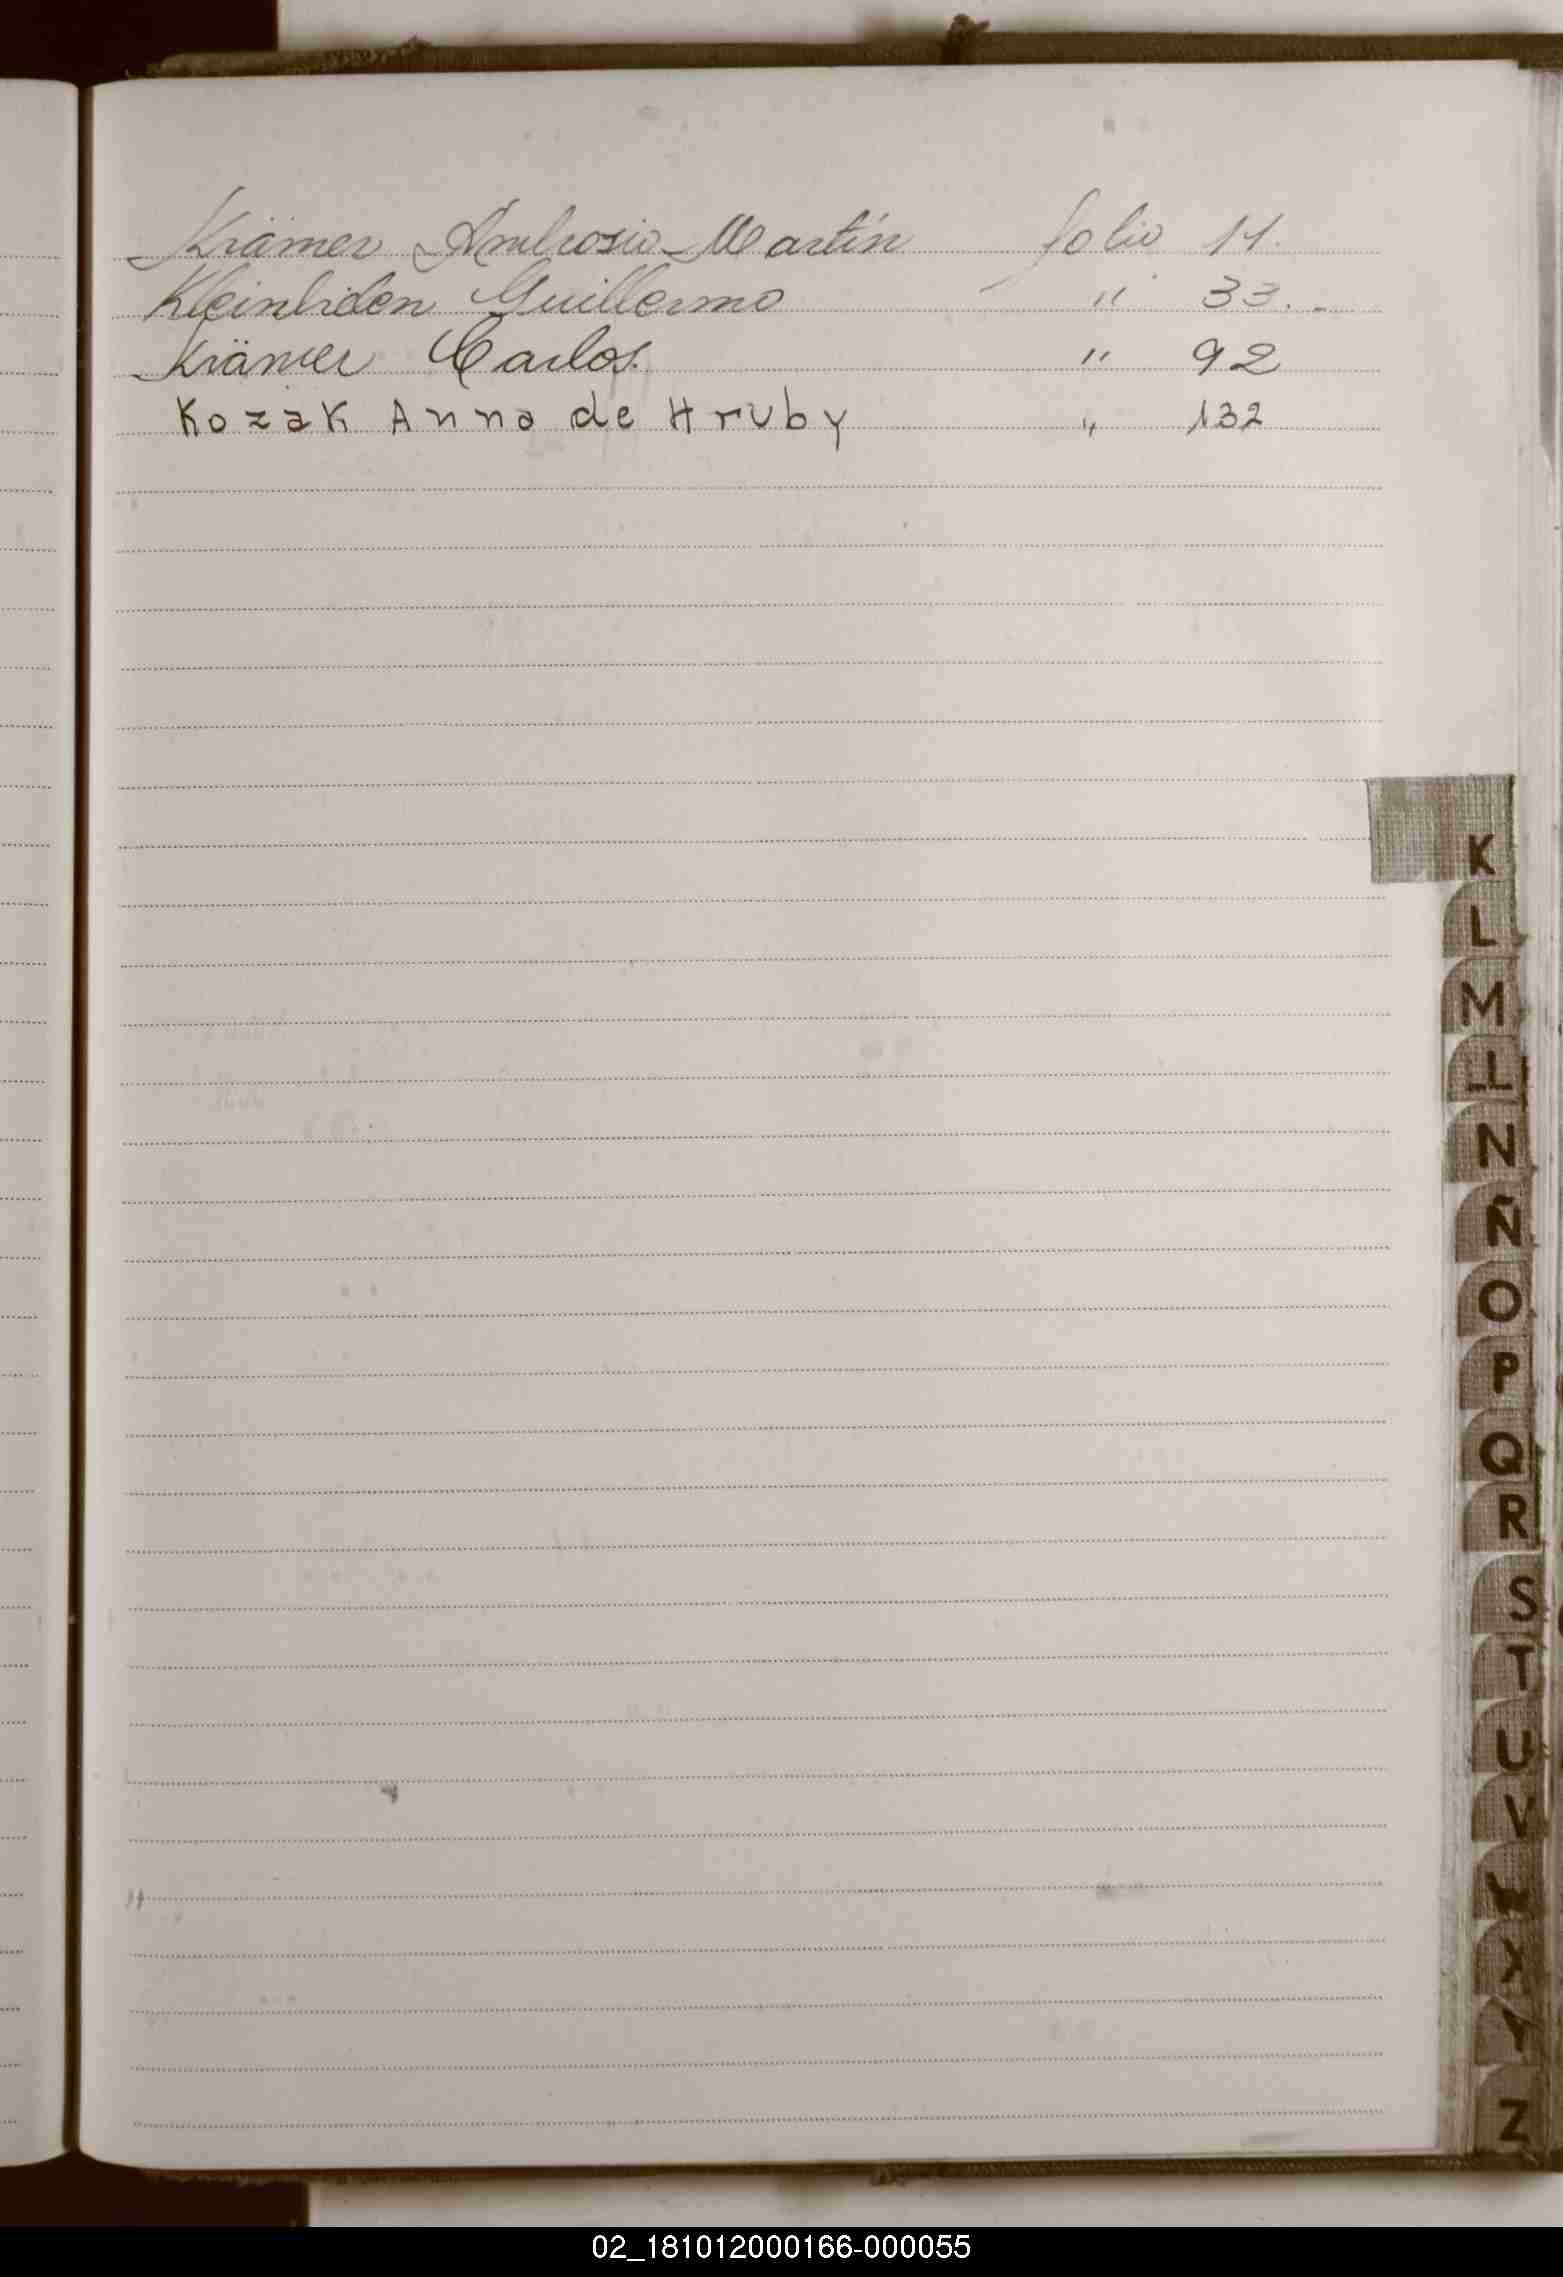 Krämer Ambrosio Martín folio 11.
Kleinhiden Guillermo " 33.-
Krämer Carlos. " 92
Kozak Anna de Hruby " 132
K
L
M
N
Ñ
O
P
Q
R
S
T
U
V
W
X
Y
Z
02_181012000166-000055